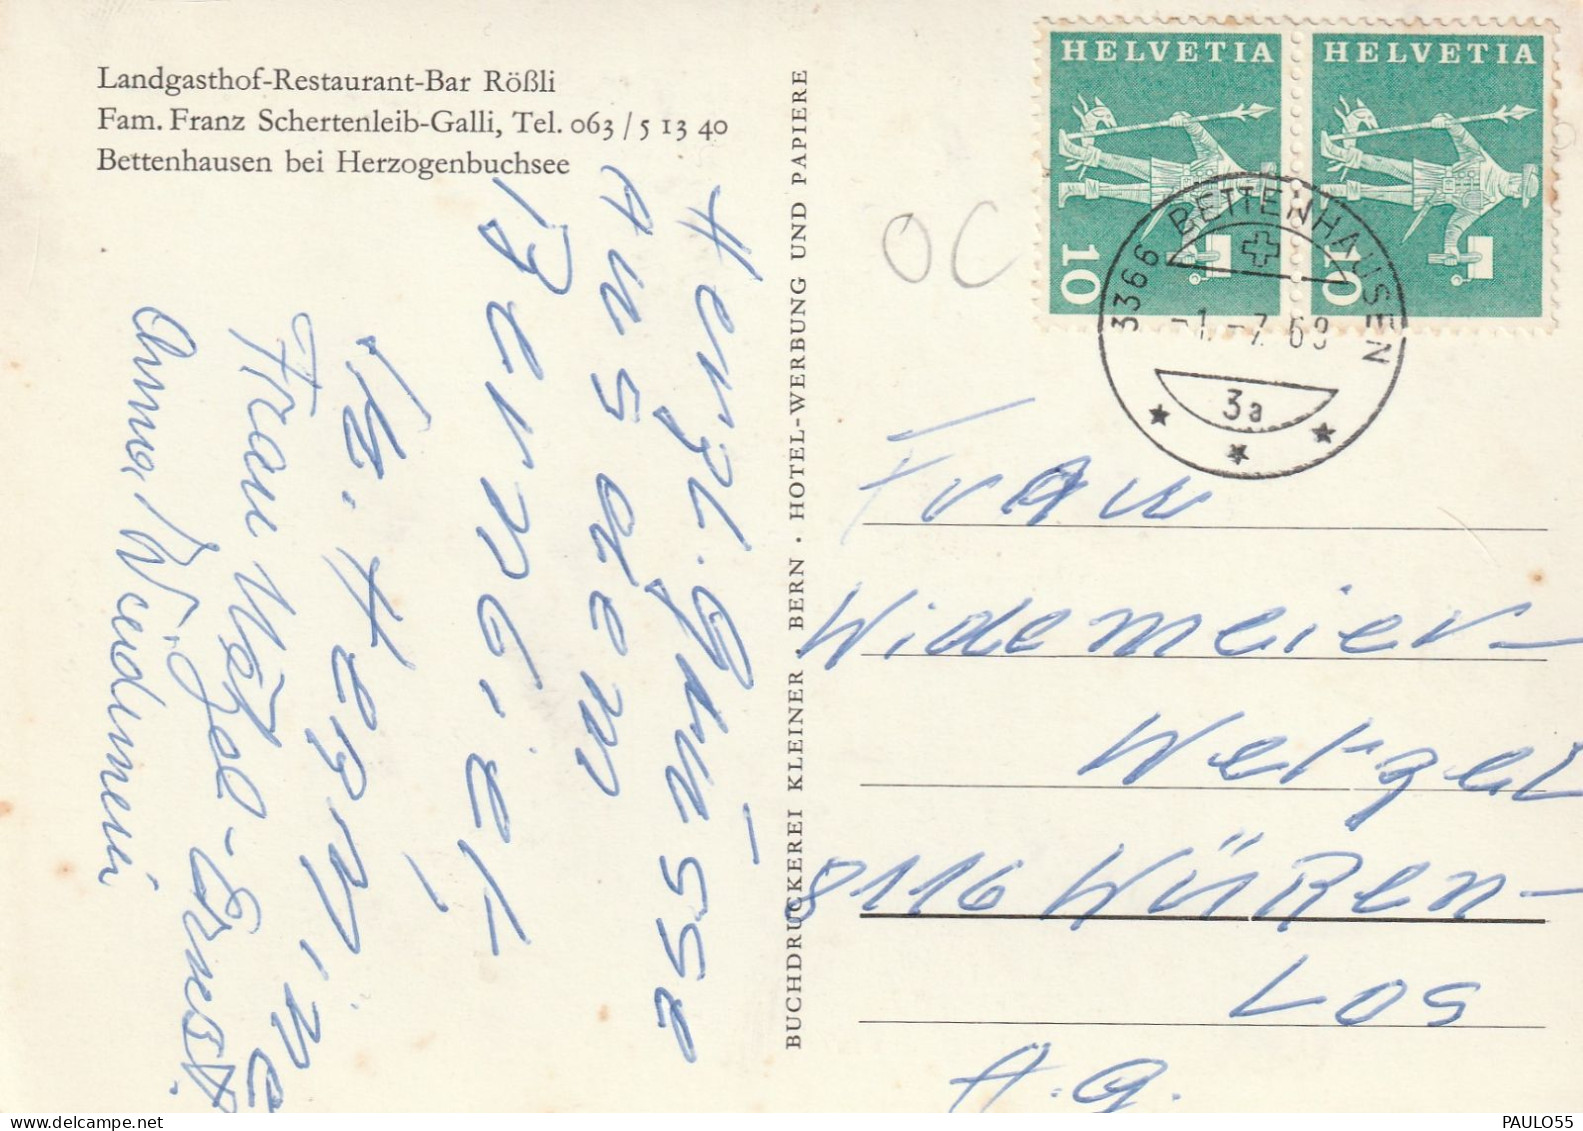 Landgasthof-Restaurant-Bar Rößli
Fam. Franz Schertenleib-Galli, Tel. 063 / 5 13 40
Bettenhausen bei Herzogenbuchsee
Herzl. Grüsse
Aus dem
Bernbiet
Hermine
Frau Wetzel-Ernst.
Anna
BUCHDRUCKEREI KLEINER . BERN . HOTEL-WERBUNG UND PAPIERE
OC
HELVETIA
10
HELVETIA
10
3366 BETTENHAUSEN
-1.-7.69
3a
Frau
Widemeier-
Wetzel
8116 Würen-
Los
A.G.
PAULO55